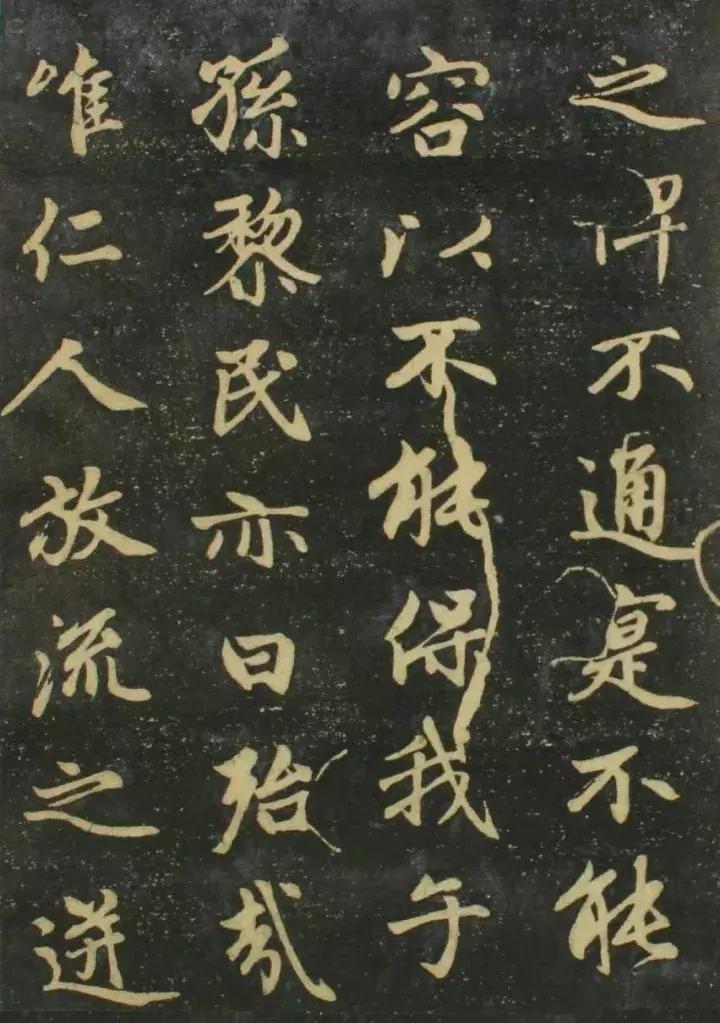 之俾不通寔不能
容以不能保我子
孫黎民亦曰殆哉
唯仁人放流之迸